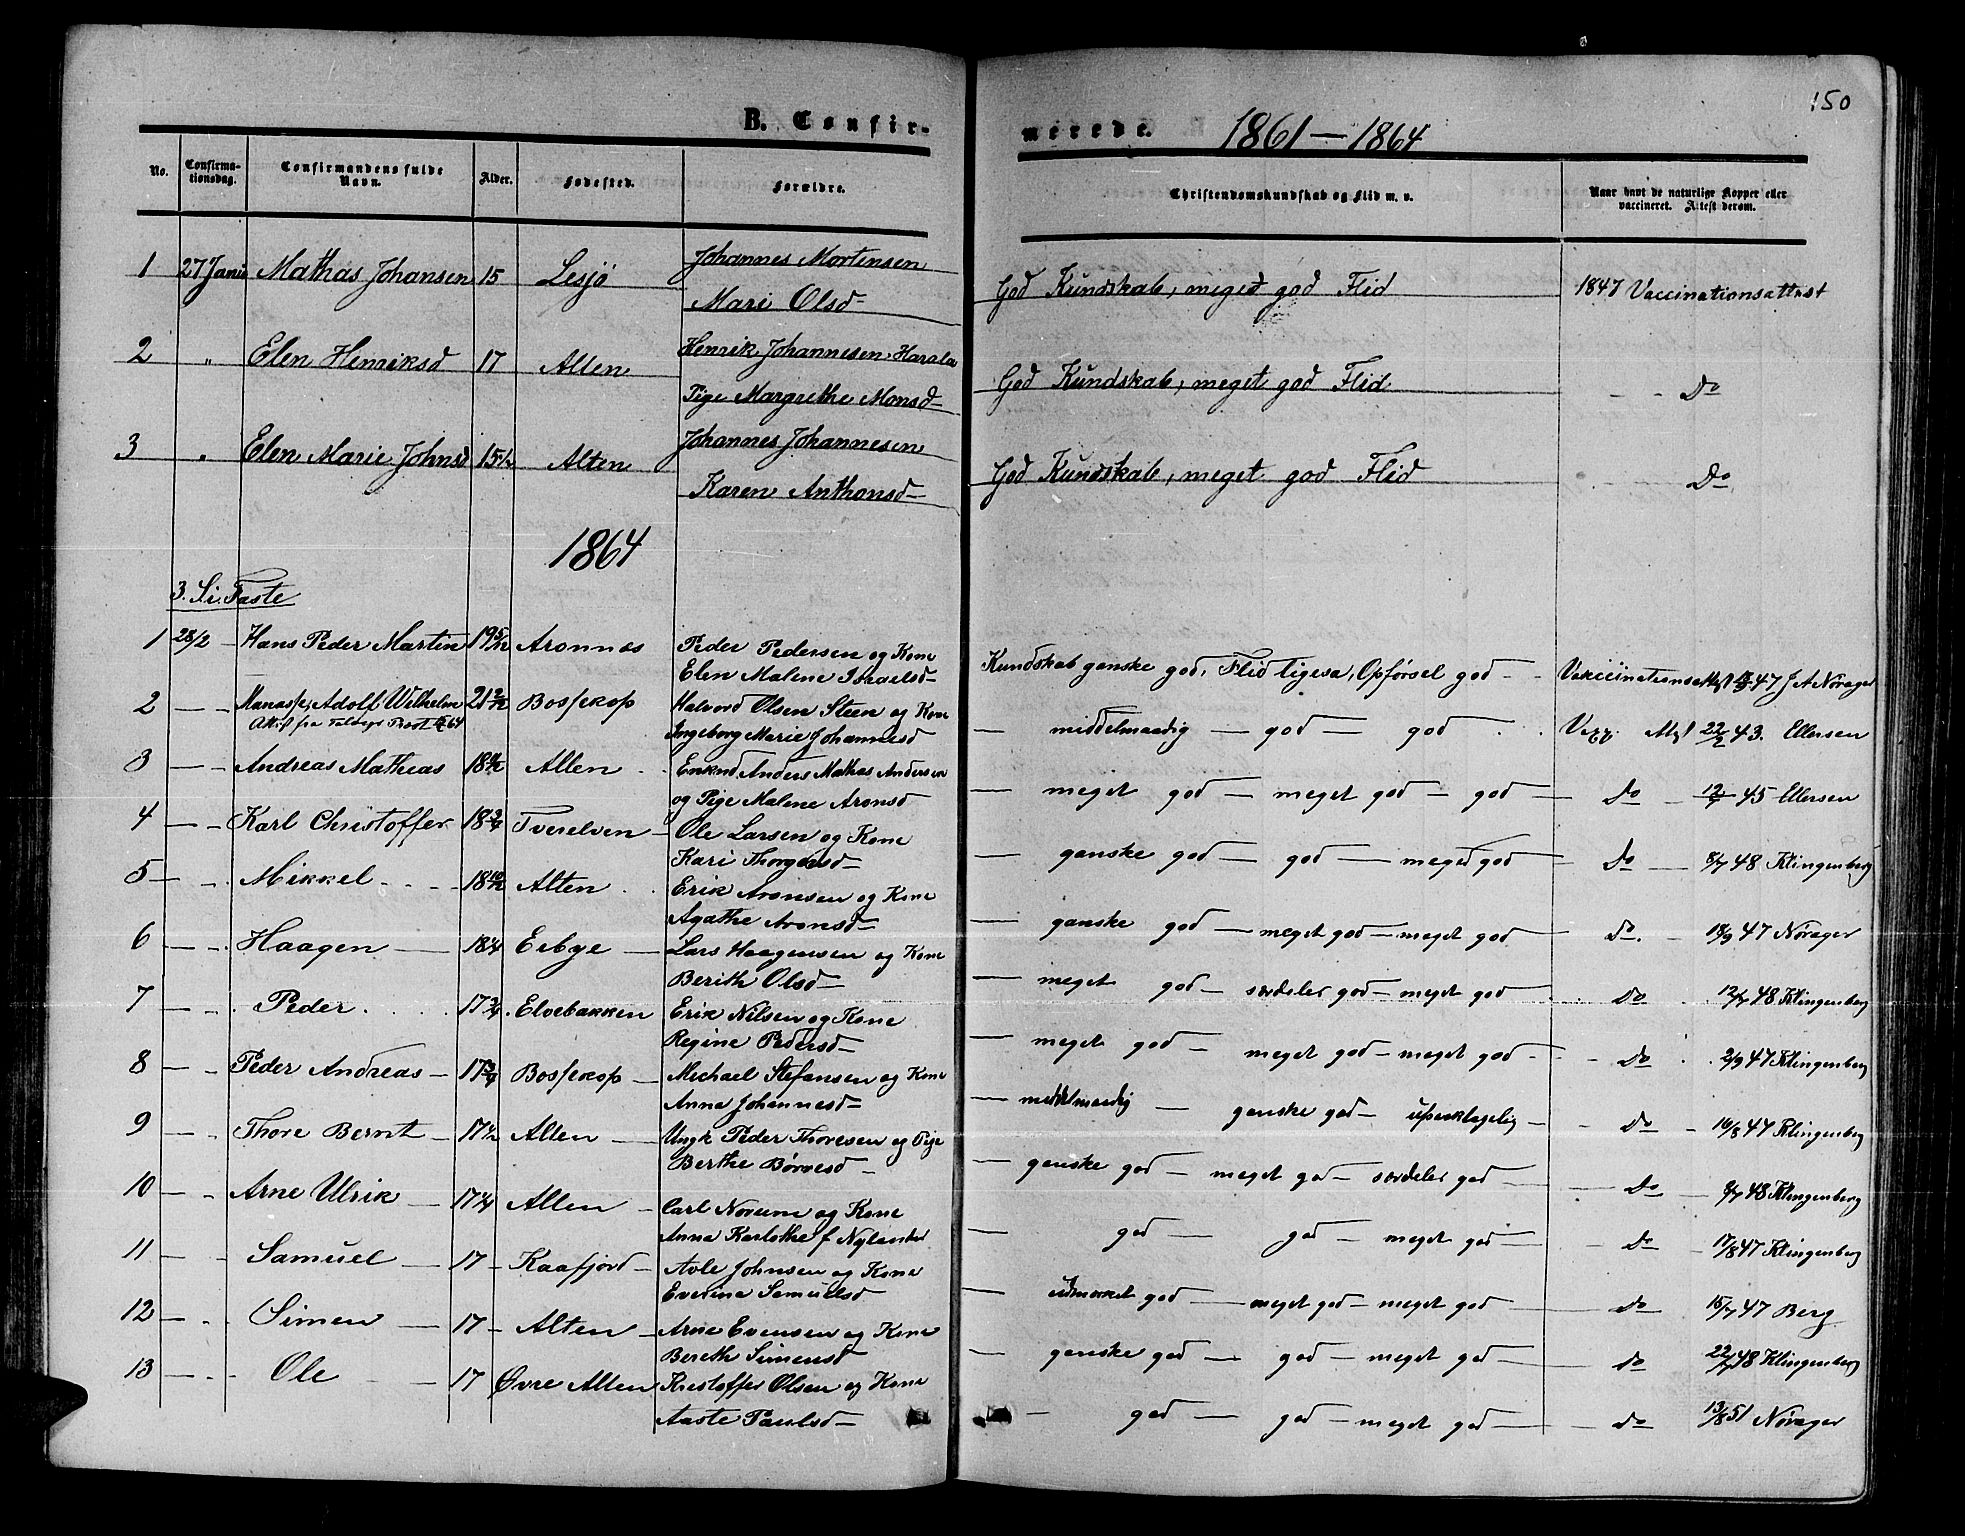 150
B. Confir-
merede.
1861 — 1864
No.
Confirma-
tionsdag.
Confirmandens fulde
Navn.
Alder.
Fødested.
Forældre.
Christendomskundskab og Flid m. v.
Naar havt de naturlige Kopper eller
vaccineret. Attest derom.
1 27 Janu Mathas Johansen 15 Lesjö Johannes Mortensen
Mari Olsd
God Kundskab, meget god Flid 1847 Vaccinationsattest
2 " Elen Henriksd 17 Alten Henrik Johannesen
Pige Margrethe Monsd
God Kundskab, meget god Flid Do
3 " Elen Marie Johnsd 15½ Alten Johannes Johannesen
Karen Anthonsd
God Kundskab, meget god Flid Do
1864
3. S. i. Faste
1 28/2 Hans Peder Martin 19 5/12 Aronnes Peder Pedersen og Kone
Elen Malene Israelsd
Kundskab ganske god, Flid ligesa, Opførsel god 47 J A Norager
2 — Adolf Wilhelm 21 Bossekop Halvord Olsen Steen og Kone
Attest fra 64
Ingeborg Marie Johannesd
— middelmaadig — god — god 22/2 43. Ellersen
3 — Andreas Mathias 18 Alten Enkmd Anders Mathas Andersen
og Pige Malene Aronsd
— meget god — meget god — god — Do — 45 Ellersen
4 — Karl Christoffer 18 Tverelven Ole Larsen og Kone
Kari Thorgersd
— ganske god — god — meget god Do — 48 Klingenberg
5 — Mikkel 18 10/12 Alten Erik Aronsen og Kone
Agathe Aronsd
— ganske god — meget god — meget god — Do. — 47 Norager
6 — Haagen — 18 Eibye Lars Haagensen og Kone
Berith Olsd
— meget god — særdeles god — meget god Do 48 Klingenberg
7 — Peder 17 Elvebakken Erik Nilsen og Kone
Regine Pedersd
— meget god — meget god — meget god — Do 2/9 47 Klingenberg
8 — Peder Andreas — 17 Bossekop — Michael Stefansen og Kone
Anna Johannesd
— middelmaadig — ganske god — upaaklagelig — Do — 16/8 47 Klingenberg
9 — Thore Bernt — 17 Alten — Ungk Peder Thoresen og Pige
Berthe Børresd
— ganske god — meget god — særdeles god — Do — 48 Klingenberg
10 — Arne Ulrik — 17 Alten — Carl Norum og Kone
Anna Karlothe f Nylander
— god — god — meget god — Do — 17/8 47 Klingenberg
11 — Samuel — 17 — Kaafjord — Avle Johnsen og Kone
Everina Samuelsd
— udmærket god — meget god — meget god — Do 15/7 47 Berg
12 — Simen — 17 — Alten — Arne Evensen og Kone
Bereth Simensd
— ganske god — god — meget god — Do 48 Klingenberg
13 — Ole — 17 Øvre Alten Kristoffer Olsen og Kone
Aaste Paulsd
— god — god — meget god — Do 13/8 51 Norager